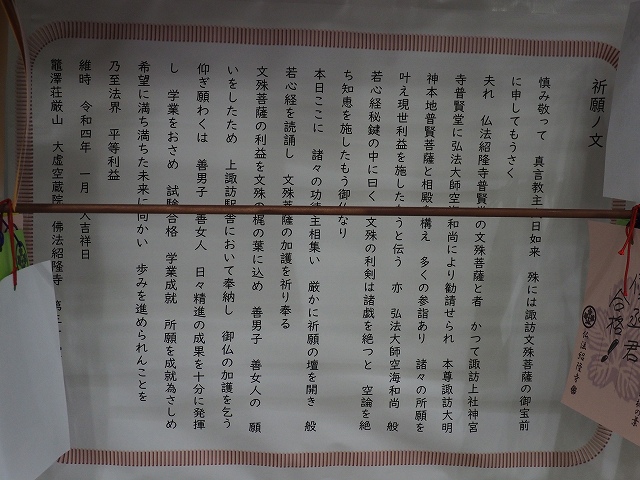 祈願ノ文
慎み敬って 真言教主 日如来 殊には諏訪文殊菩薩の御宝前
に申してもうさく
夫れ 仏法紹隆寺普賢 の文殊菩薩と者 かつて諏訪上社神宮
寺普賢堂に弘法大師空 和尚により勧請せられ 本尊諏訪大明
神本地普賢菩薩と相殿 構え 多くの参詣あり 諸々の所願を
叶え現世利益を施したもうと伝う 亦 弘法大師空海和尚 般
若心経秘鍵の中に曰く 文殊の利剣は諸戯を絶つと 空論を絶
ち知恵を施したもう御仏なり
本日ここに 諸々の功徳主相集い 厳かに祈願の壇を開き 般
若心経を読誦し 文殊菩薩の加護を祈り奉る
文殊菩薩の利益を文殊の梶の葉に込め 善男子 善女人の 願
いをしたため 上諏訪駅舎において奉納し 御仏の加護を乞う
仰ぎ願わくは 善男子 善女人 日々精進の成果を十分に発揮
し 学業をおさめ 試験合格 学業成就 所願を成就為さしめ
希望に満ち満ちた未来に向かい 歩みを進められんことを
乃至法界 平等利益
維時 令和四年 一月 大吉祥日
鼈澤荘厳山 大虚空蔵院 佛法紹隆寺 第
君
合格!
仏法紹隆寺